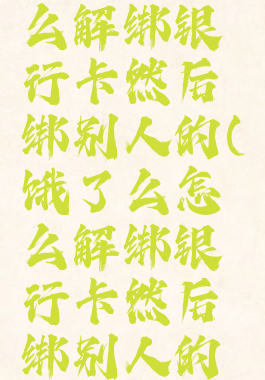 么解绑银
行卡然后
绑别人的(
饿了么怎
么解绑银
行卡然后
绑别人的